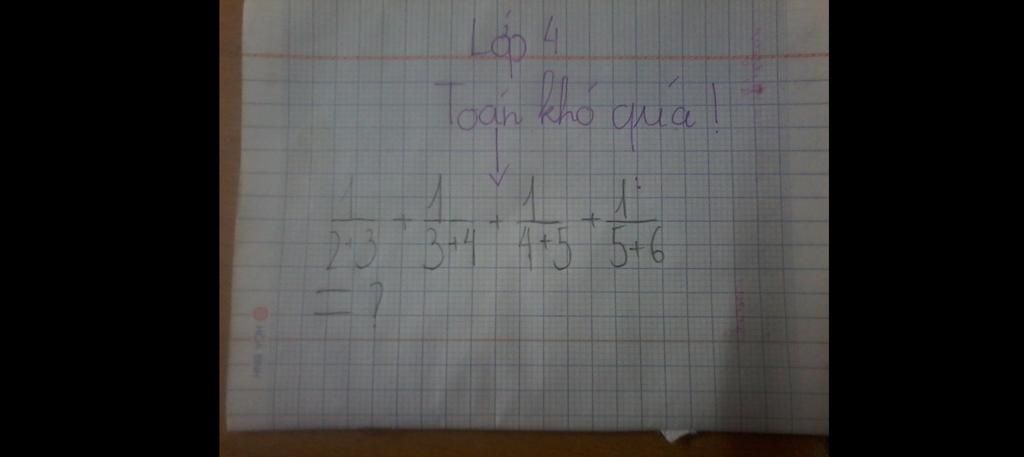 Lớp 4
Toán khó quá!
1/2+3 + 1/3+4 + 1/4+5 + 1/5+6
= ?